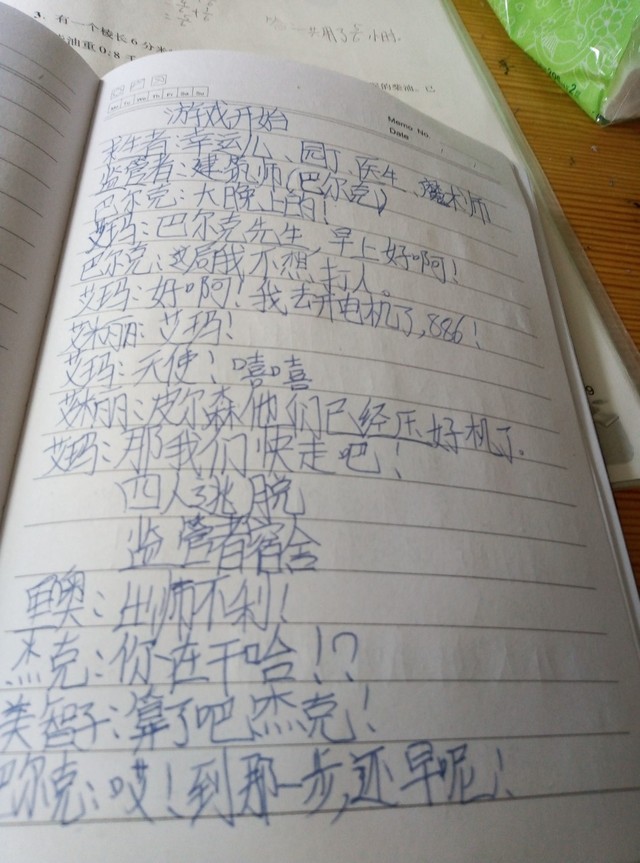 3. 有一个棱长6分米
油重0.8
一共用了 小时.
的柴油。已
Memo No.
Date
Mo Tu We Th Fr Sa Su
游戏开始
求生者：幸运儿、园丁、医生、魔术师
监管者：建筑师(巴尔克)
巴尔克：大晚上的！
艾玛：巴尔克先生，早上好啊！
巴尔克：以后我不想打人。
艾玛：好啊！我去开电机了，886！
艾米丽：艾玛！
艾玛：天使！嘻嘻
艾米丽：皮尔森他们已经压好机了。
艾玛：那我们快走吧！
四人逃脱
监管者宿舍
里奥：出师不利！
杰克：你在干哈！？
美智子：算了吧，杰克！
巴尔克：哎！到那一步，还早呢！